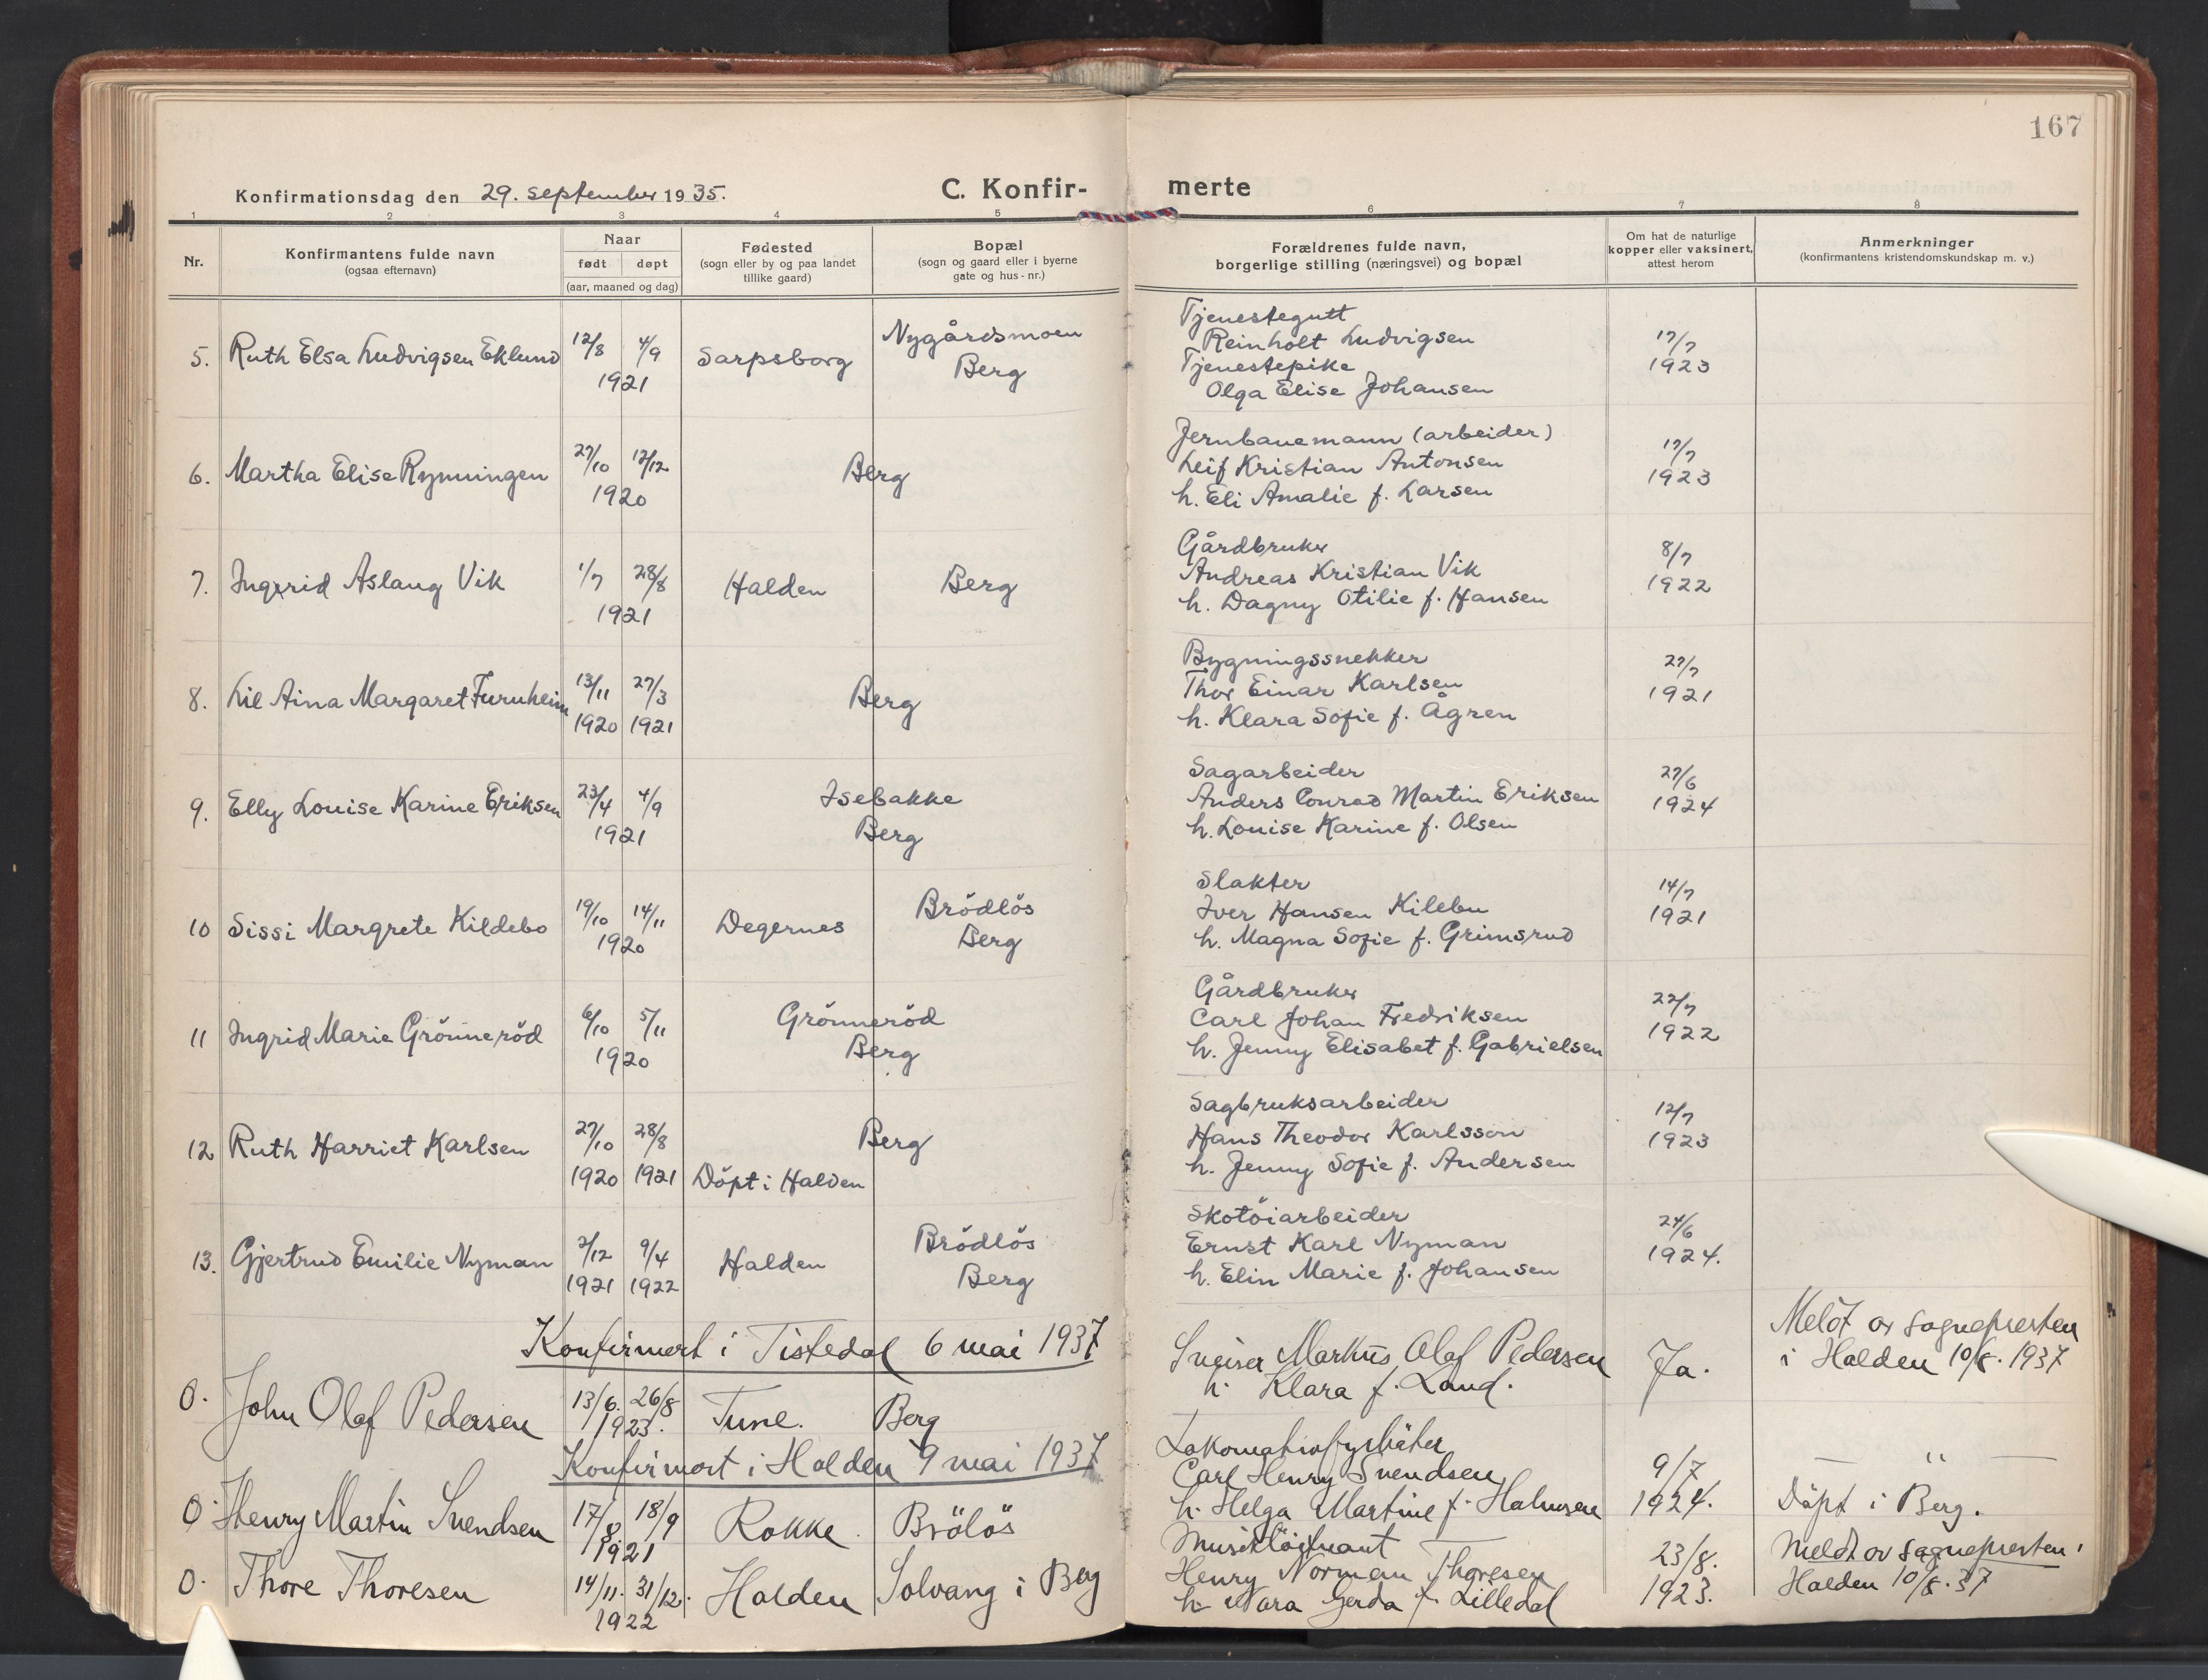 167
Konfirmationsdag den 29. september 1935.
C. Konfir-
merte
1 2 3 4 5 6 7 8
Nr.
Konfirmantens fulde navn
(ogsaa efternavn)
Naar
født døpt
(aar, maaned og dag)
Fødested
(sogn eller by og paa landet
tillike gaard)
Bopæl
(sogn og gaard eller i byerne
gate og hus-nr.)
Forældrenes fulde navn,
borgerlige stilling (næringsvei) og bopæl
Om hat de naturlige
kopper eller vaksinert,
attest herom
Anmerkninger
(konfirmantens kristendomskundskap m. v.)
5. Ruth Elsa Ludvigsen Eklund 12/8 4/9
1921
Sarpsborg
Nygårdsmoen
Berg
Tjenestegutt
Reinholt Ludvigsen
Tjenestepike
Olga Elise Johansen
17/7
1923
6. Martha Elise Rynningen 27/10 12/12
1920
Berg
Jernbanemann (arbeider)
Leif Kristian Antonsen
h. Eli Amalie f. Larsen
17/7
1923
7. Ingerid Aslaug Vik 1/7 28/8
1921
Halden
Berg
Gårdbruker
Andreas Kristian Vik
h. Dagny Otilie f. Hansen
8/7
1922
8. Lil Aina Margaret Furuheim 13/11 27/3
1920 1921
Berg
Bygningssnekker
Thor Einar Karlsen
h. Klara Sofie f. Ågren
27/7
1921
9. Elly Louise Karine Eriksen 23/4 4/9
1921
Isebakke
Berg
Sagarbeider
Anders Conrad Martin Eriksen
h. Louise Karine f. Olsen
27/6
1924
10 Sissi Margrete Kildebo 19/10 14/11
1920
Degernes
Brödlös
Berg
Slakter
Iver Hansen Kilebu
h. Magna Sofie f. Grimsrud
14/7
1921
11 Ingrid Marie Grönneröd 6/10 5/11
1920
Grönneröd
Berg
Gårdbruker
Carl Johan Fredriksen
h. Jenny Elisabet f. Gabrielsen
22/7
1922
12 Ruth Harriet Karlsen 27/10 28/8
1920 1921
Berg
Döpt i Halden
Sagbruksarbeider
Hans Theodor Karlsson
h. Jenny Sofie f. Andersen
12/7
1923
13. Gjertrud Emilie Nyman 2/12 9/4
1921 1922
Halden
Brödlös
Berg
Skotöiarbeider
Ernst Karl Nyman
h. Elin Marie f. Johansen
24/6
1924.
Konfirmert i Tistedal 6 mai 1937
0. John Olaf Pedersen 13/6. 26/8
1923.
Tune. Berg
Markus Olaf Pedersen
h. Klara f. Lund.
Ja.
Meldt av sognepresten
i Halden 10/8. 1937
Konfirmert i Halden 9 mai 1937
0. Henry Martin Svendsen 17/8. 18/9
1921
Rokke. Brölös
Lokomotivfyrbøter
Carl Henry Svendsen
h. Helga Martine f. Halvorsen
9/7
1924.
— " —
Döpt i Berg.
0. Thore Thoresen 14/11. 31/12.
1922
Halden Solvang i Berg
Musikløitnant
Henry Norman Thoresen
h. Nora Gerda f. Lilledal
23/8.
1923.
Meldt av sognepresten i
Halden 10/8. 37